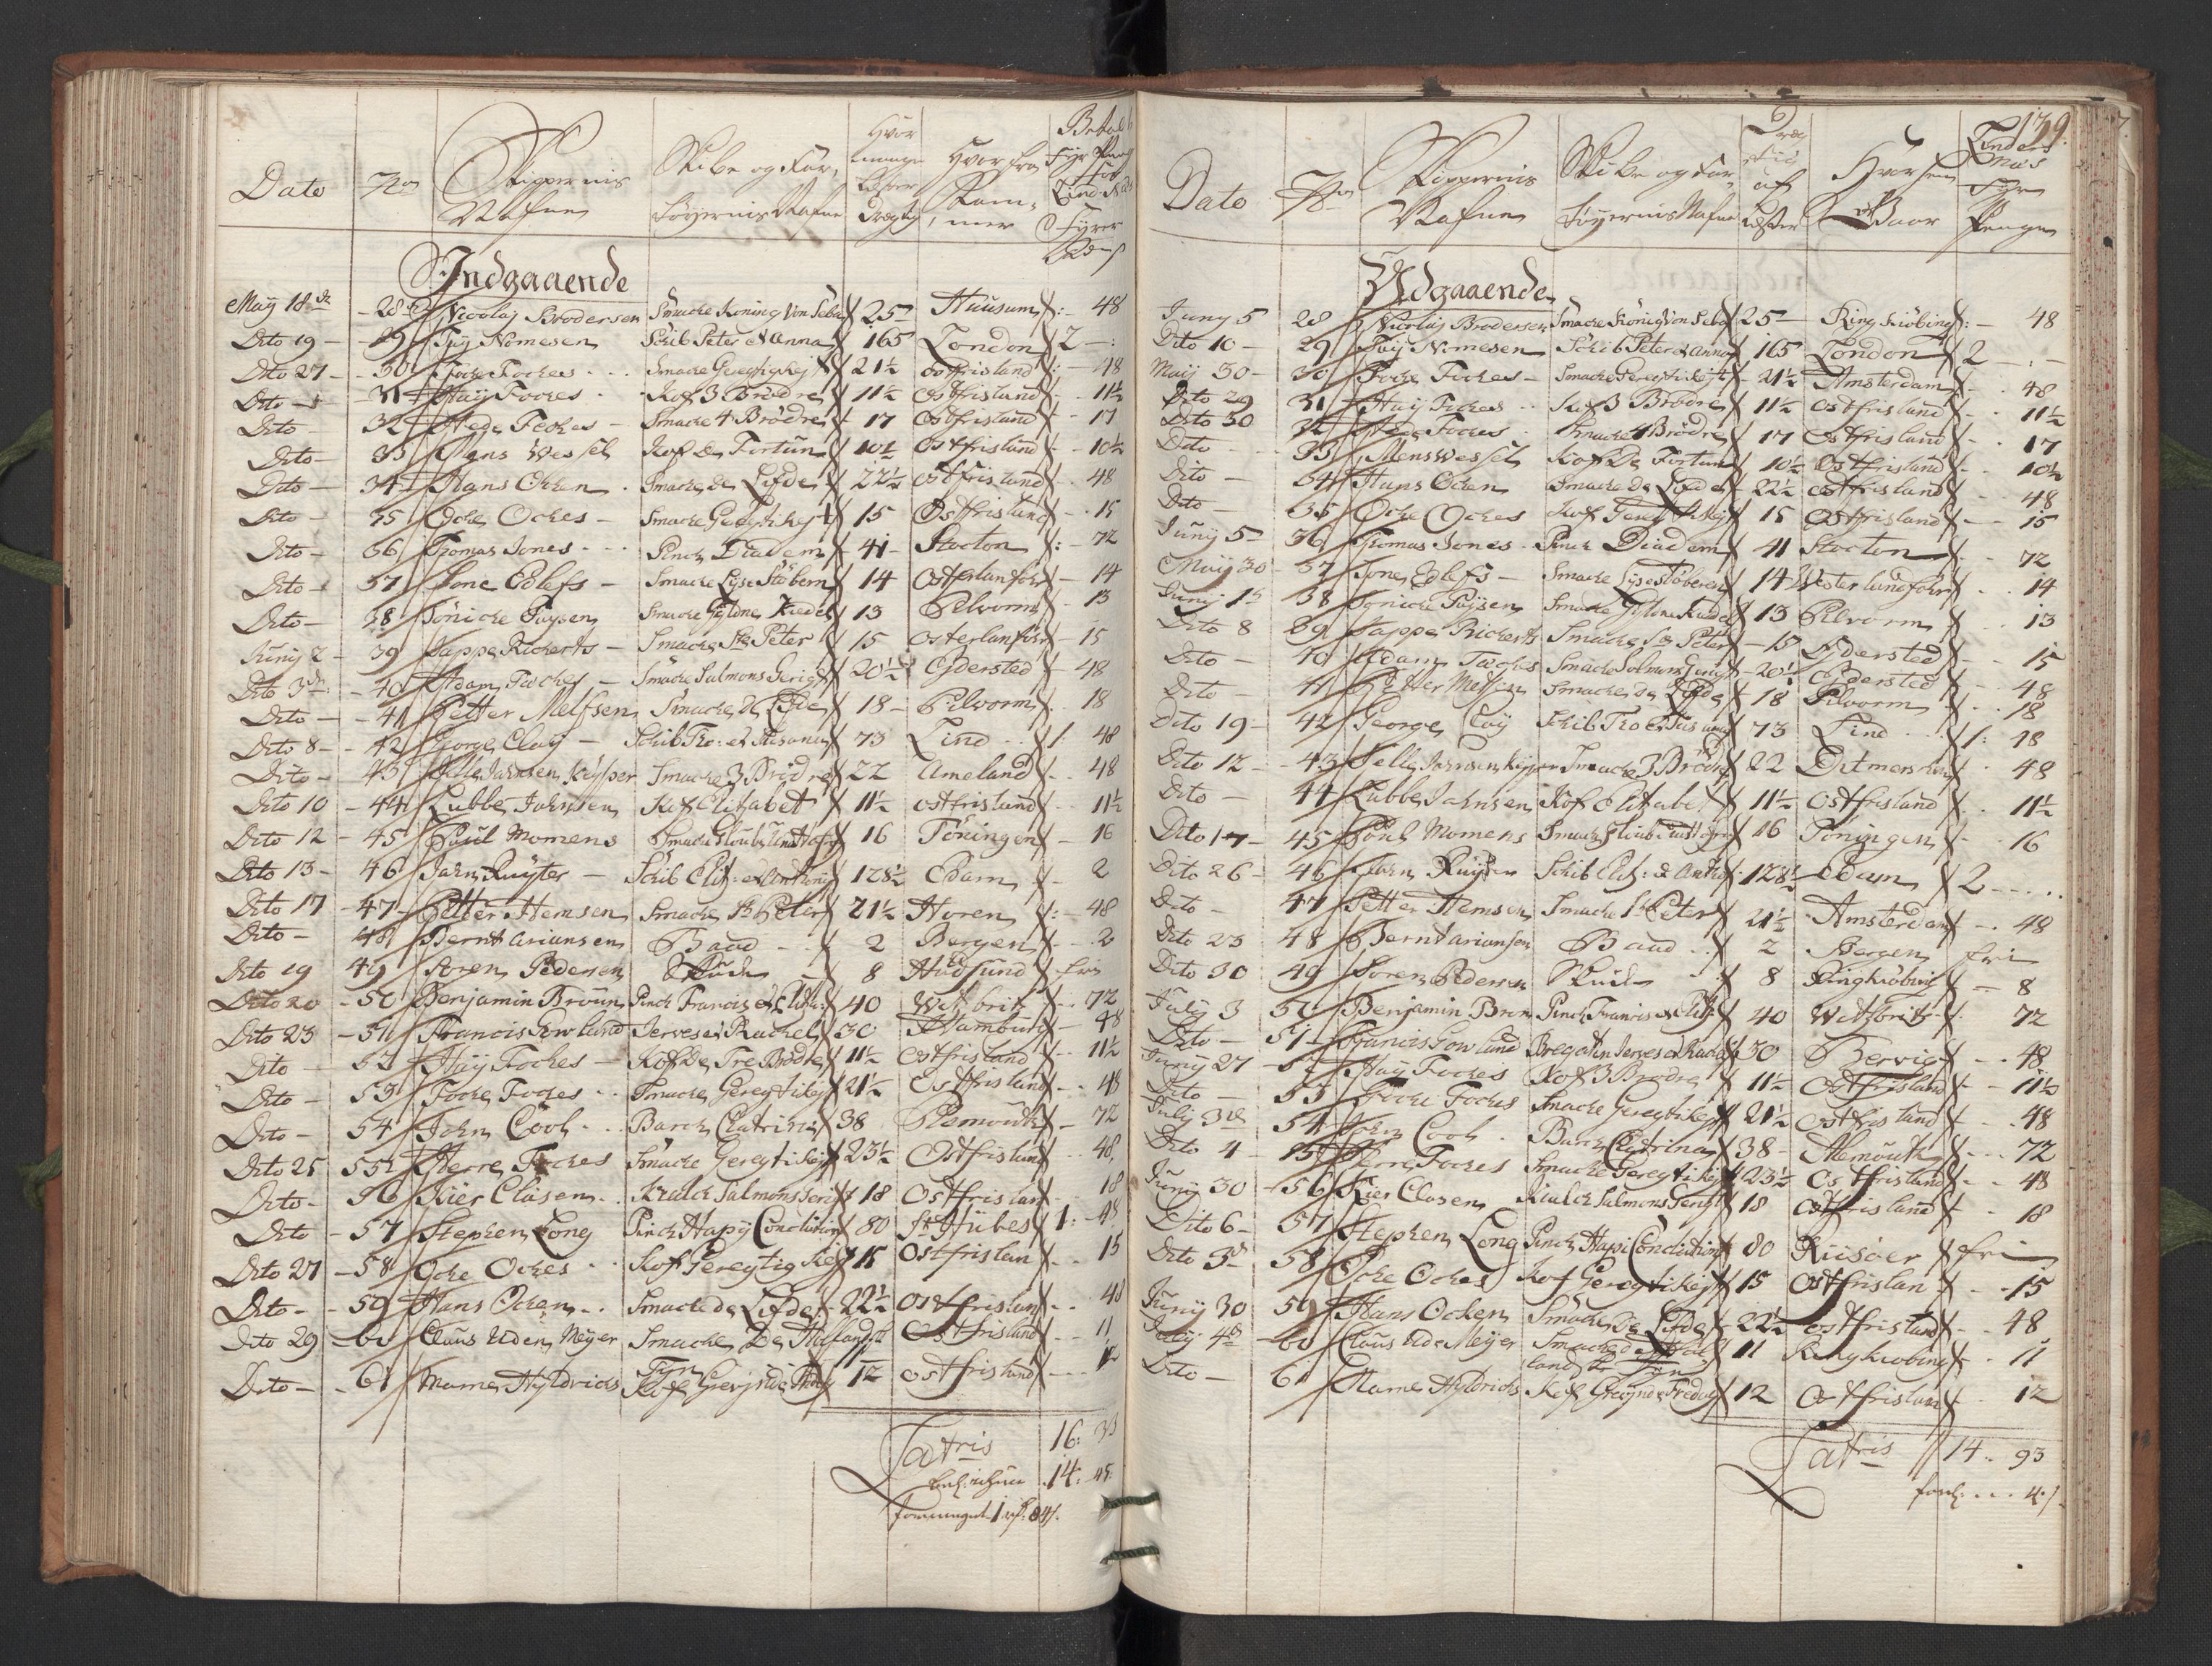 Dato No Skippernis Nafne Skibe og Far, tøyernis Nafne Hvor mange Læster Drægtig Hvor fra Kom, mer Betalt Fyr Penge
Indgaaende
Maÿ 18de 28de Nicolaÿ Brodersen Smacke Koning Von Seba 25 Huusum - 48
Dito 19 29 Tuÿ Nomesen Schib Peter et Anna 165 London 2 -
Dito 27 30 Focke Fockes Smacke Geregtigkeÿt 21½ Ostfrisland - 48
Dito 31 Haÿ Fockes Kof 3 Brødre 11½ Ostfrisland - 11½
Dito 32 Hede Fockes Smacke 4 Brødre 17 Ostfrisland - 17
Dito 33 Mens Wessels Kof De Fortuna 10½ Ostfrisland - 10½
Dito 34 Hans Ocken Smacke de Lifde 22½ Ostfrisland - 48
Dito 35 Ocke Ockes Smacke Geregtikeÿt 15 Ostfrisland - 15
Dito 36 Thomas Jones Pinck Diadem 41 Stocton - 72
Dito 37 Jone Edlefs Smacke Lyse Støbern 14 Osterlanføhr - 14
Dito 38 Jönicke Paÿsen Smacke Gyldne Kiede 13 Pilvorm - 13
Junÿ 2 39 Jappe Rickerts Smacke Ste Peter 15 Osterlanføhr - 15
Dito 3de 40 Adam Tackes Smacke Salmons Gerigt 20½ Eÿdersted - 48
Dito 41 Petter Melfsen Smacke de Lifde 18 Pilvorm 18
Dito 8 42 George Claÿ Schib Tho: et Susana 73 Lind 1 48
Dito 43 Jelle Jahnsen Keÿser Smacke 3 Brødre 22 Ameland - 48
Dito 10 44 Lubbe Jahnsen Kof Elisabet 11½ Ostfrisland - 11½
Dito 12 45 Paul Momens Smacke Gloube Und Hofn 16 Töningen - 16
Dito 13 46 Jahn Ruÿter Schib Elis: et Anthonÿ 128½ Edam 2
Dito 17 47 Petter Hemsen Smacke St Peter 21½ Horen - 48
Dito 48 Bernt Ariansen Baad 2 Bergen - 2
Dito 19 49 Søren Pedersen Skude 8 Hadsund fri
Dito 20 50 Benjamin Broun Pinck Francis et Elisa: 40 Witbrit - 72
Dito 23 51 Francis Gowland Jerves et Rachel 30 Hamburg - 48
Dito 52 Haÿ Fockes Kof De Tre Brødre 11½ Ostfrisland - 11½
Dito 53 Focke Fockes Smacke Geregtikeÿt 21½ Ostfrisland - 48
Dito 54 John Cook Barck Catrina 38 Plemouth - 72
Dito 25 55 Herre Fockes Smacke Geregtikeÿt 23½ Ostfrisland - 48
Dito 56 Kier Clasen Kuulck Salmons Gerigt 18 Ostfrislan 18
Dito 57 Stephen Long Pinck Hapÿ Conclution 80 St Hübes 1: 48
Dito 27 58 Ocke Ockes Kof Geregtigkeÿt 15 Ostfrislan 15
Dito 59 Hans Ocken Smacke de Lifde 22½ Ostfrislan 48
Dito 29 60 Claus Uden Meÿer Smacke De Hollandst Tyn 11 Ostfrisland 11
Dito 61 Mame Hyldrichs Kof Greÿnde Fredag 12 Ostfrisland 12
Latris 16: 33
14: 45
1 rd: 84 s.
139
Dato No Skippernis Nafne Skibe og Far, tøyernis Nafne Dræ gtig af Læster Hvor hen Faar Lindesnæs Fyr Penge
Udgaaende
Juny 5 28 Nicolaÿ Brodersen Smacke König Von Seba 25 Ringkiøbing - 48
Dito 10 29 Taÿ Nomesen Schib Peter et Anna 165 London 2 -
Maÿ 30 30 Focke Fockes Smacke Geregtikeÿt 21½ Amsterdam - 48
Dito 29 31 Haÿ Fockes Kof 3 Brødre 11½ Ostfrisland 11½
Dito 30 32 Hede Fockes Smacke 4 Brødre 17 Ostfrisland - 17
Dito 33 Mens Wessels Kof De Fortuna 10½ Ostfrisland 10½
Dito 34 Hans Ocken Smacke de Lifde 22½ Ostfrisland 48
Dito 35 Ocke Ockes Kof Geregtikeÿt 15 Ostfrisland - 15
Juny 5 36 Thomas Jones Pinck Diadem 41 Stocton 72
Maÿ 30 37 Jone Edlefs Smacke Lyse Støberen 14 Westerlandføhr 14
Junÿ 1st 38 Jönicke Paÿsen Smacke Gylne Kiede 13 Pilvorm 13
Dito 8 39 Jappe Rickerts Smacke St Peter 15 Eÿdersted 15
Dito 40 Adam Tackes Smacke Salmons Gerigt 20½ Eÿdersted - 48
Dito 41 Petter Melfsen Smacke de Lifde 18 Pilvorm - 18
Dito 19 42 George Claÿ Schib Tho et Susana 73 Lind 1: 48
Dito 12 43 Jelle Jahnsen Keÿser Smacke 3 Brødre 22 Ditmersken 48
Dito 44 Lubbe Jahnsen Kof Elisabet 11½ Ostfrisland 11½
Dito 17 45 Poul Momens Smacke Gloube Und Hofn 16 Töningen 16
Dito 26 46 Jahn Ruÿter Schib Elis: et Antho 128½ Edam 2
Dito 47 Petter Hemsen Smacke St Peter 21½ Amsterdam - 48
Dito 23 48 Bernt Ariansen Baad 2 Bergen fri
Dito 30 49 Søren Pedersen Skude 8 Ringkiøbing - 8
July 3 50 Benjamin Bron Pinck Francis et Elisa 40 Witbrit 72
Dito 51 Francis Gowland Bregatin Jerves et Rachel 30 Bervig - 48
Juny 27 52 Haÿ Fockes Kof 3 Brødre 11½ Ostfrisland - 11½
Dito 53 Focke Fockes Smacke Geregtikeÿt 21½ Ostfrisland 48
Julÿ 3de 54 John Cook Barck Catrina 38 Alemouth 72
Dito 4 55 Herre Fockes Smacke Geregtikeÿt 23½ Ostfrisland - 48
Junÿ 30 56 Kier Clasen Kuulck Salmons Gerigt 18 Ostfrisland 18
Dito 6 57 Stephen Long Pinck Hapi Conclution 80 Riisøer fri
Dito 3de 58 Ocke Ockes Kof Geregtikeÿt 15 Ostfrislan 15
Junÿ 30 59 Hans Ocken Smacke De Lifde 22½ Ostfrisland 48
Julÿ 4de 60 Claus Ude Meÿer Smacke de Hollandste Tyn 11 Ringkiøbing 11
Dito 61 Mame Hyldrichs Kof Greÿnde Fredag 12 Ostfrislan 12
Latris 14: 93